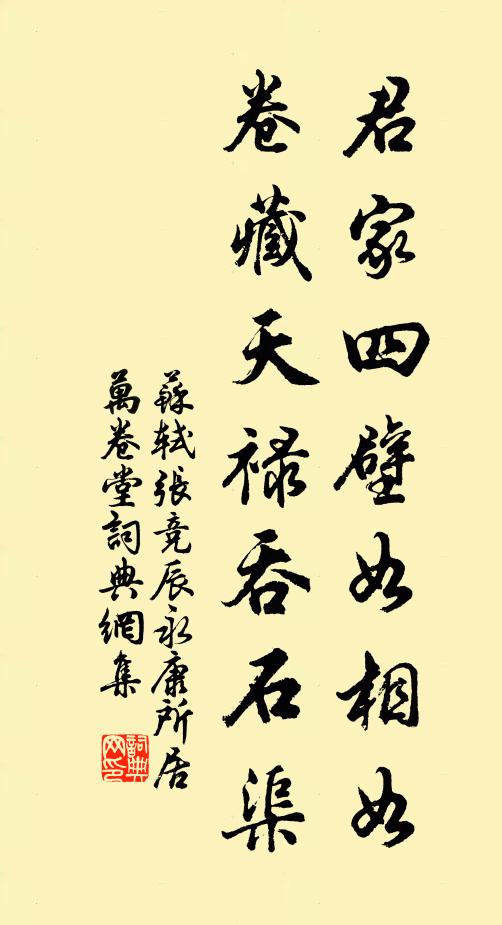 君家四壁如相如
卷藏天禄吞石渠
蘇軾張竞辰永康所居
萬卷堂詞典網集
詞典网印